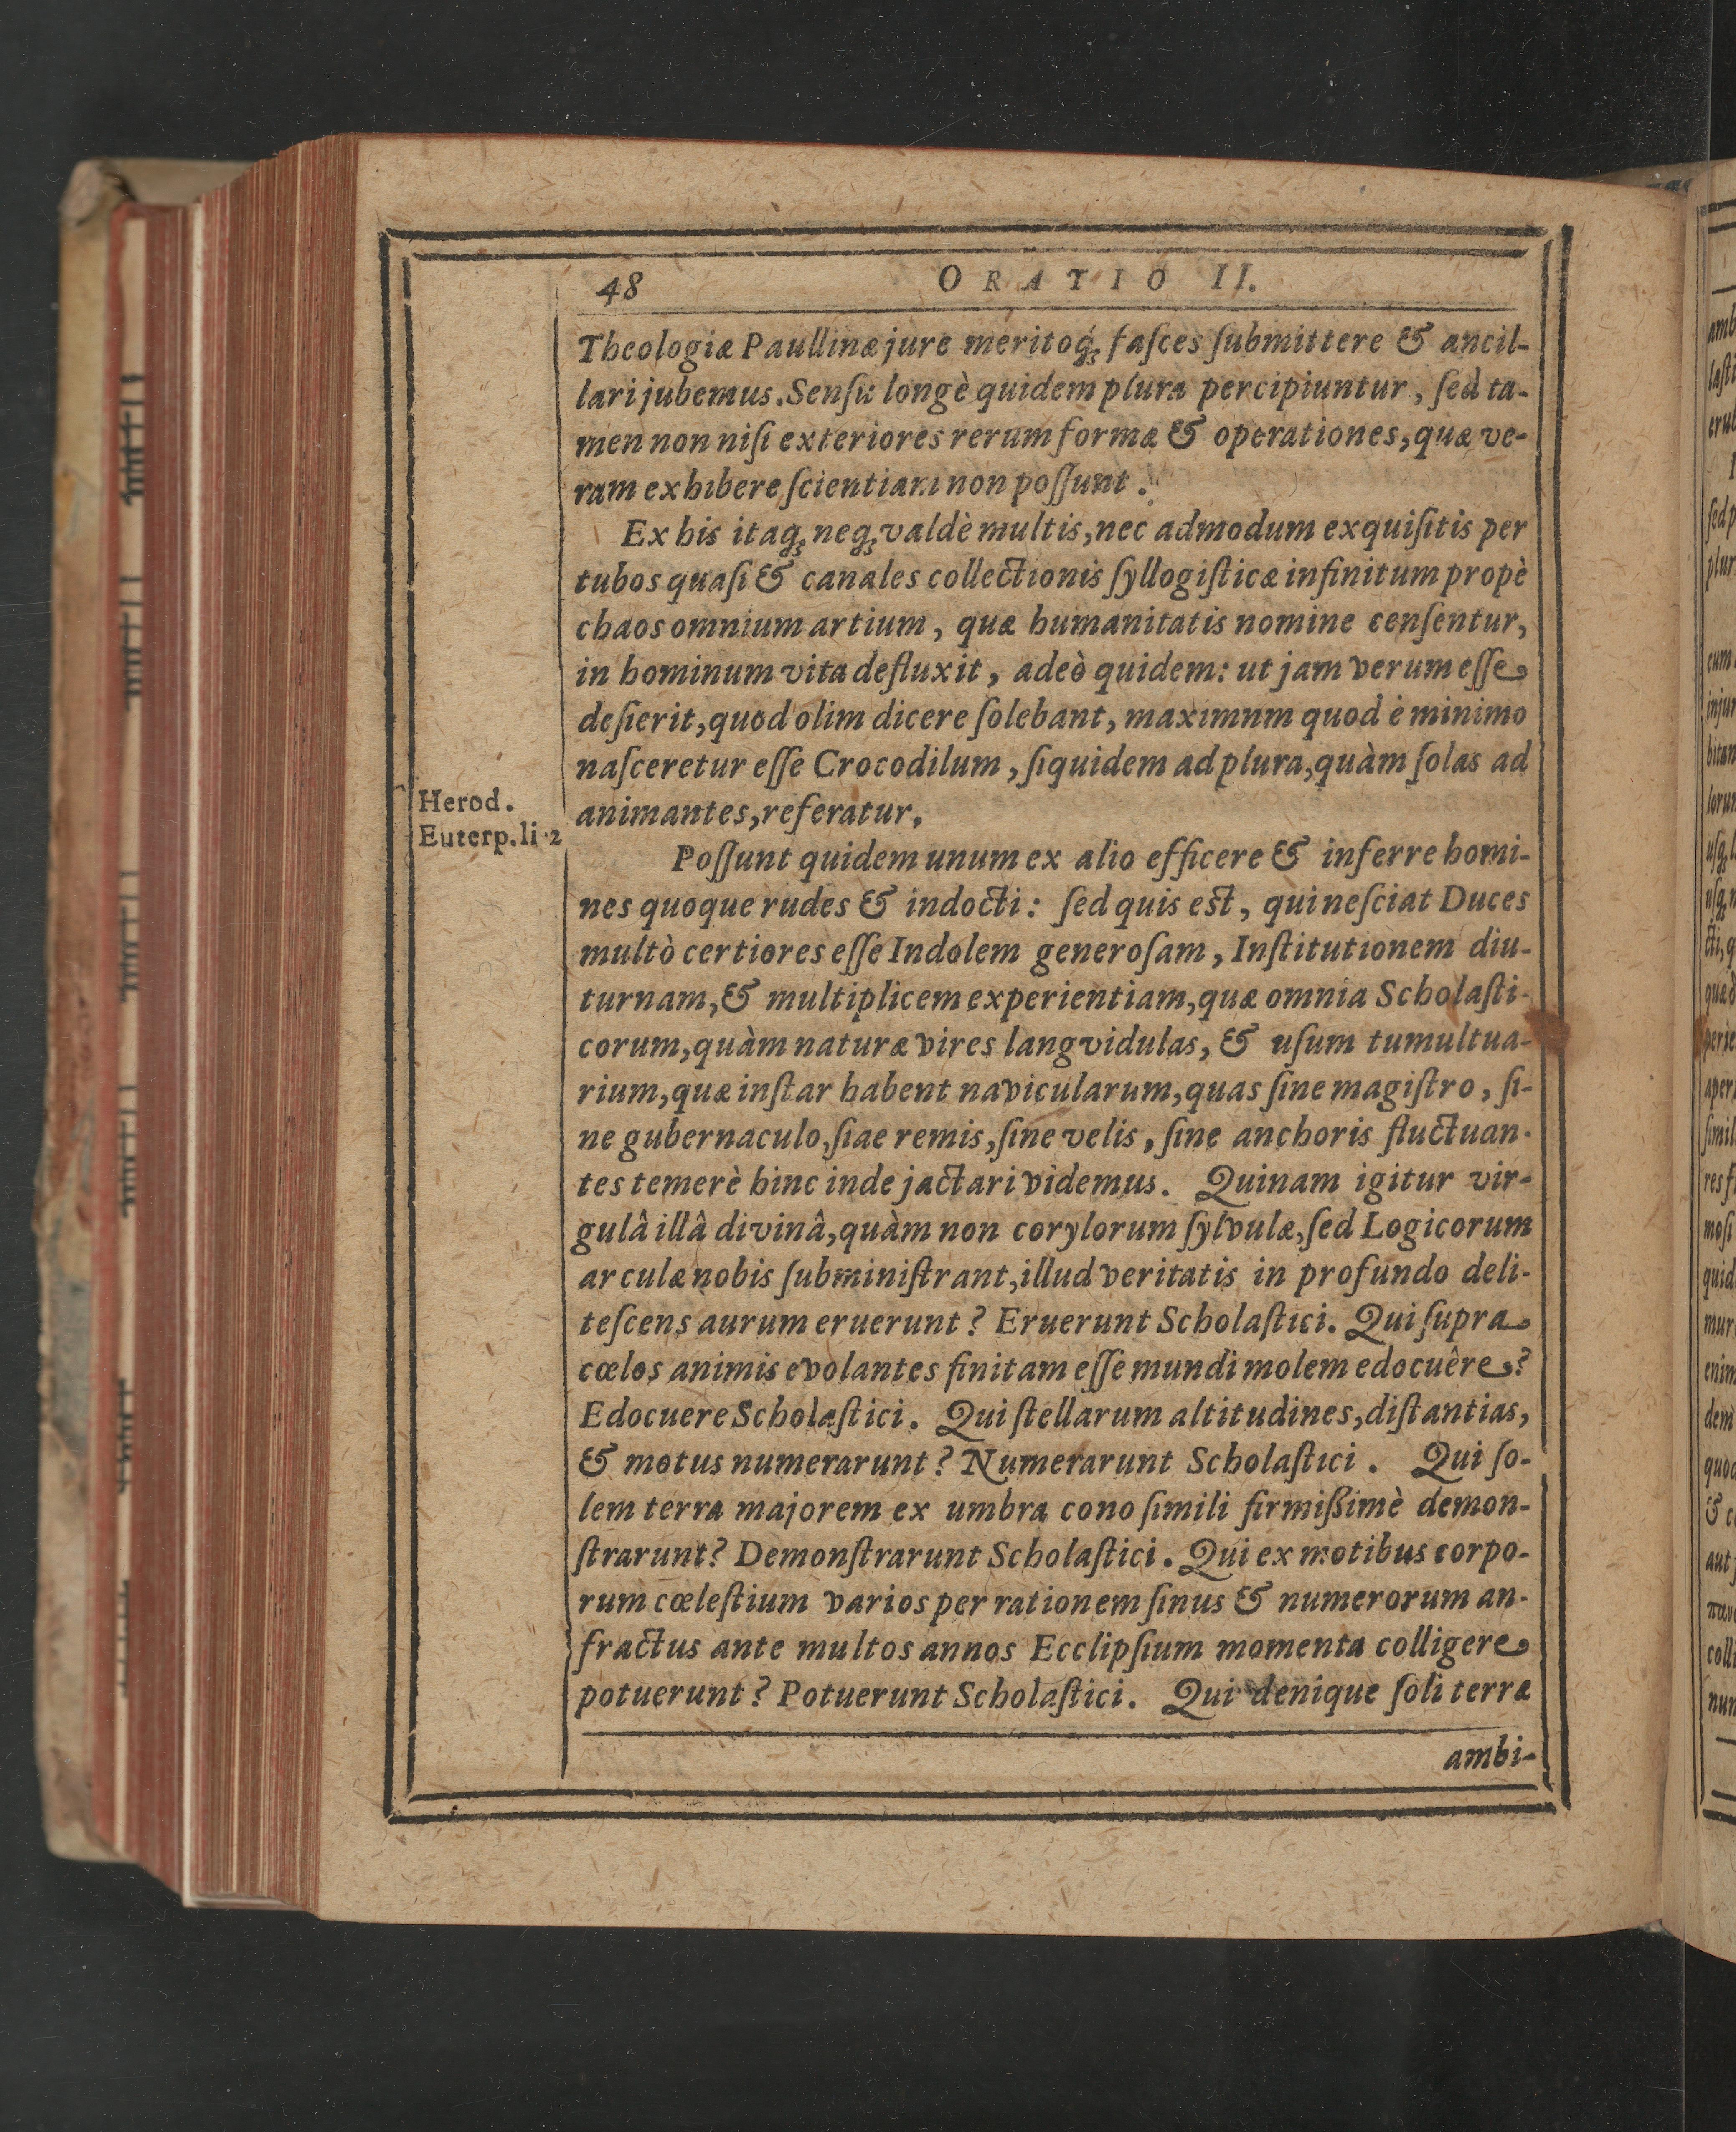 48 ORATIO II.
Theologiæ Paullinæ jure meritoq́; faſces ſubmittere & ancil-
lari jubemus. Senſu longè quidem plura percipiuntur, ſed ta-
men non niſi exteriores rerum formæ & operationes, quæ ve-
ram exhibere ſcientiam non poſſunt.
Ex his itaq; neq; valdè multis, nec admodum exquiſitis per
tubos quaſi & canales collectionis ſyllogiſticæ infinitum propè
chaos omnium artium, quæ humanitatis nomine cenſentur,
in hominum vita defluxit, adeò quidem: ut jam verum eſſe
deſierit, quod olim dicere ſolebant, maximnm quod è minimo
naſceretur eſſe Crocodilum, ſiquidem ad plura, quàm ſolas ad
Herod.
Euterp. li 2
animantes, referatur.
Poſſunt quidem unum ex alio efficere & inferre homi-
nes quoque rudes & indocti: ſed quis est, qui neſciat Duces
multò certiores eſſe Indolem generoſam, Inſtitutionem diu-
turnam, & multiplicem experientiam, quæ omnia Scholaſti-
corum, quàm naturæ vires langvidulas, & uſum tumultua-
rium, quæ inſtar habent navicularum, quas ſine magiſtro, ſi-
ne gubernaculo, ſiae remis, ſine velis, ſine anchoris fluctuan-
tes temerè hinc inde jactari videmus. Quinam igitur vir-
gulâ illâ divinâ, quàm non corylorum ſylvulæ, ſed Logicorum
arculæ nobis ſubminiſtrant, illud veritatis in profundo deli-
teſcens aurum eruerunt? Eruerunt Scholaſtici. Qui ſupra
cœlos animis evolantes finitam eſſe mundi molem edocuêre?
Edocuere Scholaſtici. Qui ſtellarum altitudines, diſtantias,
& motus numerarunt? Numerarunt Scholaſtici. Qui ſo-
lem terra majorem ex umbra cono ſimili firmißimè demon-
ſtrarunt? Demonſtrarunt Scholaſtici. Qui ex motibus corpo-
rum cœleſtium varios per rationem ſinus & numerorum an-
fractus ante multos annos Ecclipſium momenta colligere
potuerunt? Potuerunt Scholaſtici. Qui denique ſoli terræ
ambi-